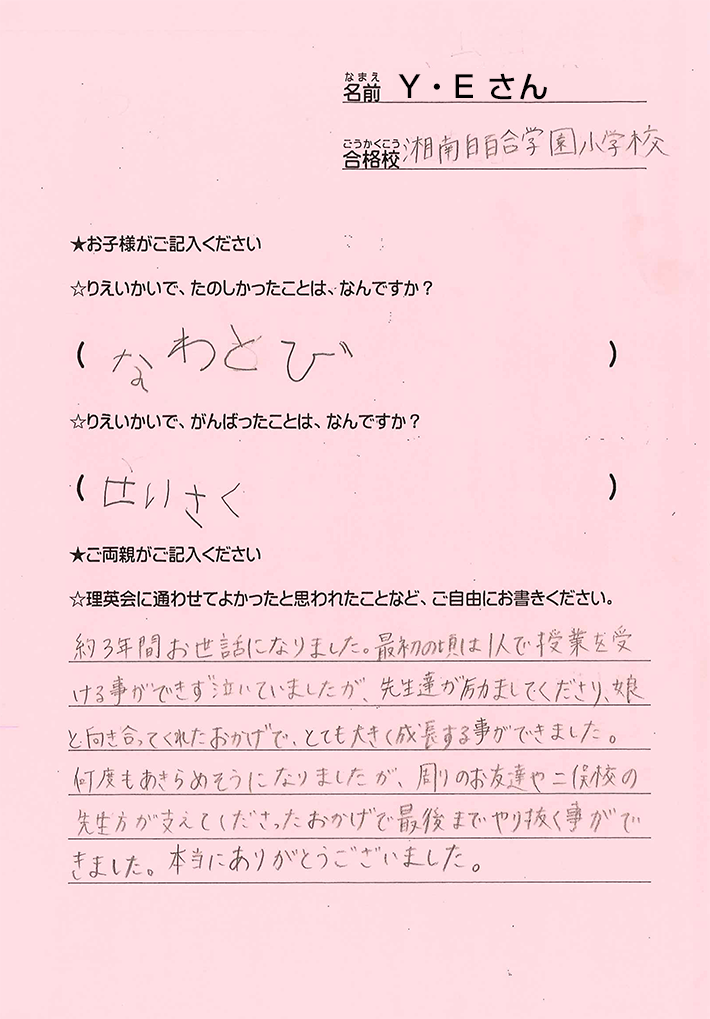 なまえ
名前 Y・Eさん
ごうかくこう
合格校 湘南白百合学園小学校
★お子様がご記入ください
☆りえいかいで、たのしかったことは、なんですか？
( なわとび )
☆りえいかいで、がんばったことは、なんですか？
( せいさく )
★ご両親がご記入ください
☆理英会に通わせてよかったと思われたことなど、ご自由にお書きください。
約3年間お世話になりました。最初の頃は1人で授業を受
ける事ができず泣いていましたが、先生達が励ましてくださり、娘
と向き合ってくれたおかげで、とても大きく成長する事ができました。
何度もあきらめそうになりましたが、周りのお友達や二俣校の
先生方が支えてくださったおかげで最後までやり抜く事がで
きました。本当にありがとうございました。